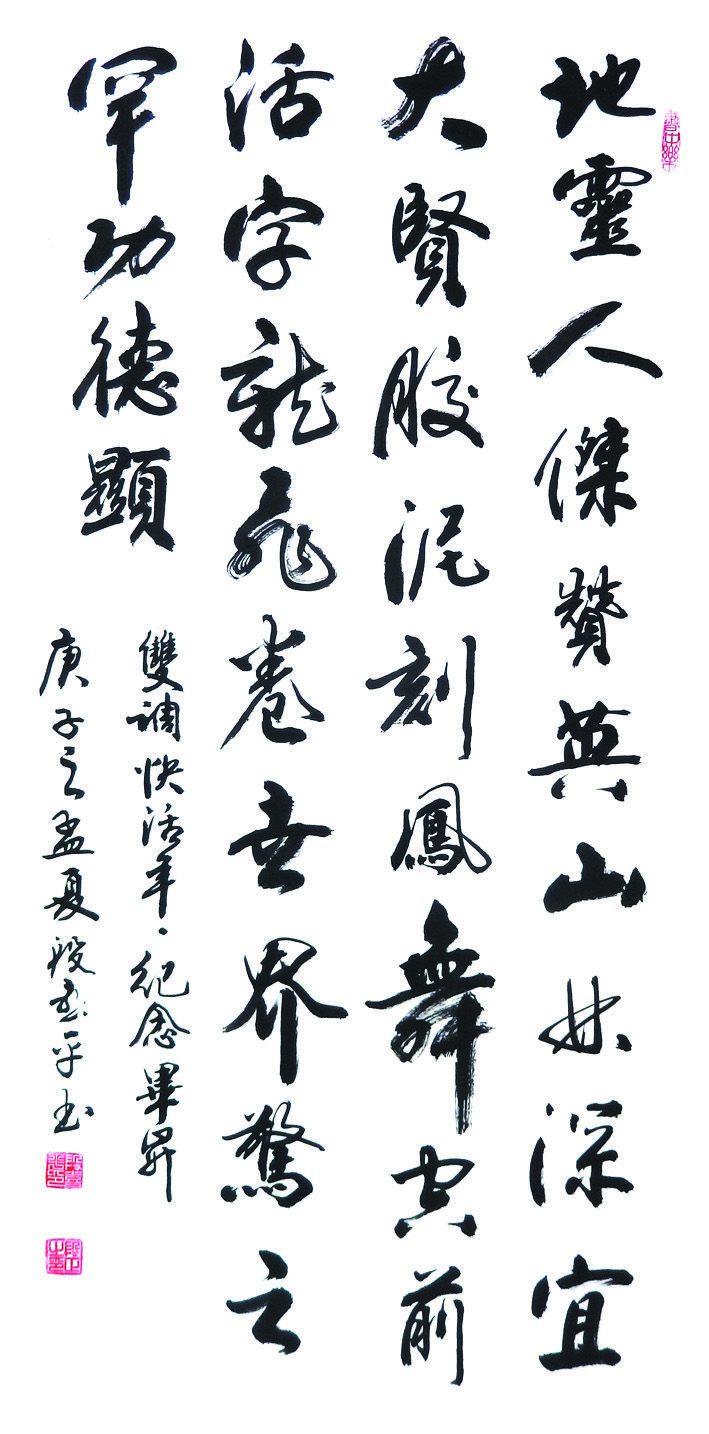 地靈人傑贊英山林深宜
大賢胶泥刻鳳舞空前
活字龍飛卷世界驚云
罕功德顯
雙調快活年·紀念畢昇
庚子之孟夏段平书
書中樂